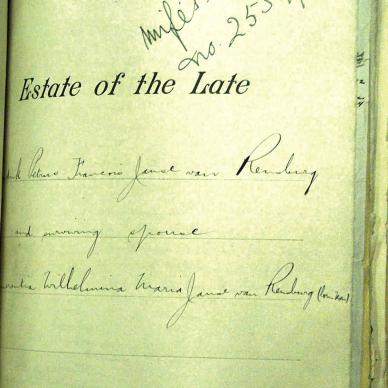 wife's
no. 2534
Estate of the Late
Petrus Francois Janse van Rensburg
and surviving spouse
Wilhelmina Maria Janse van Rensburg